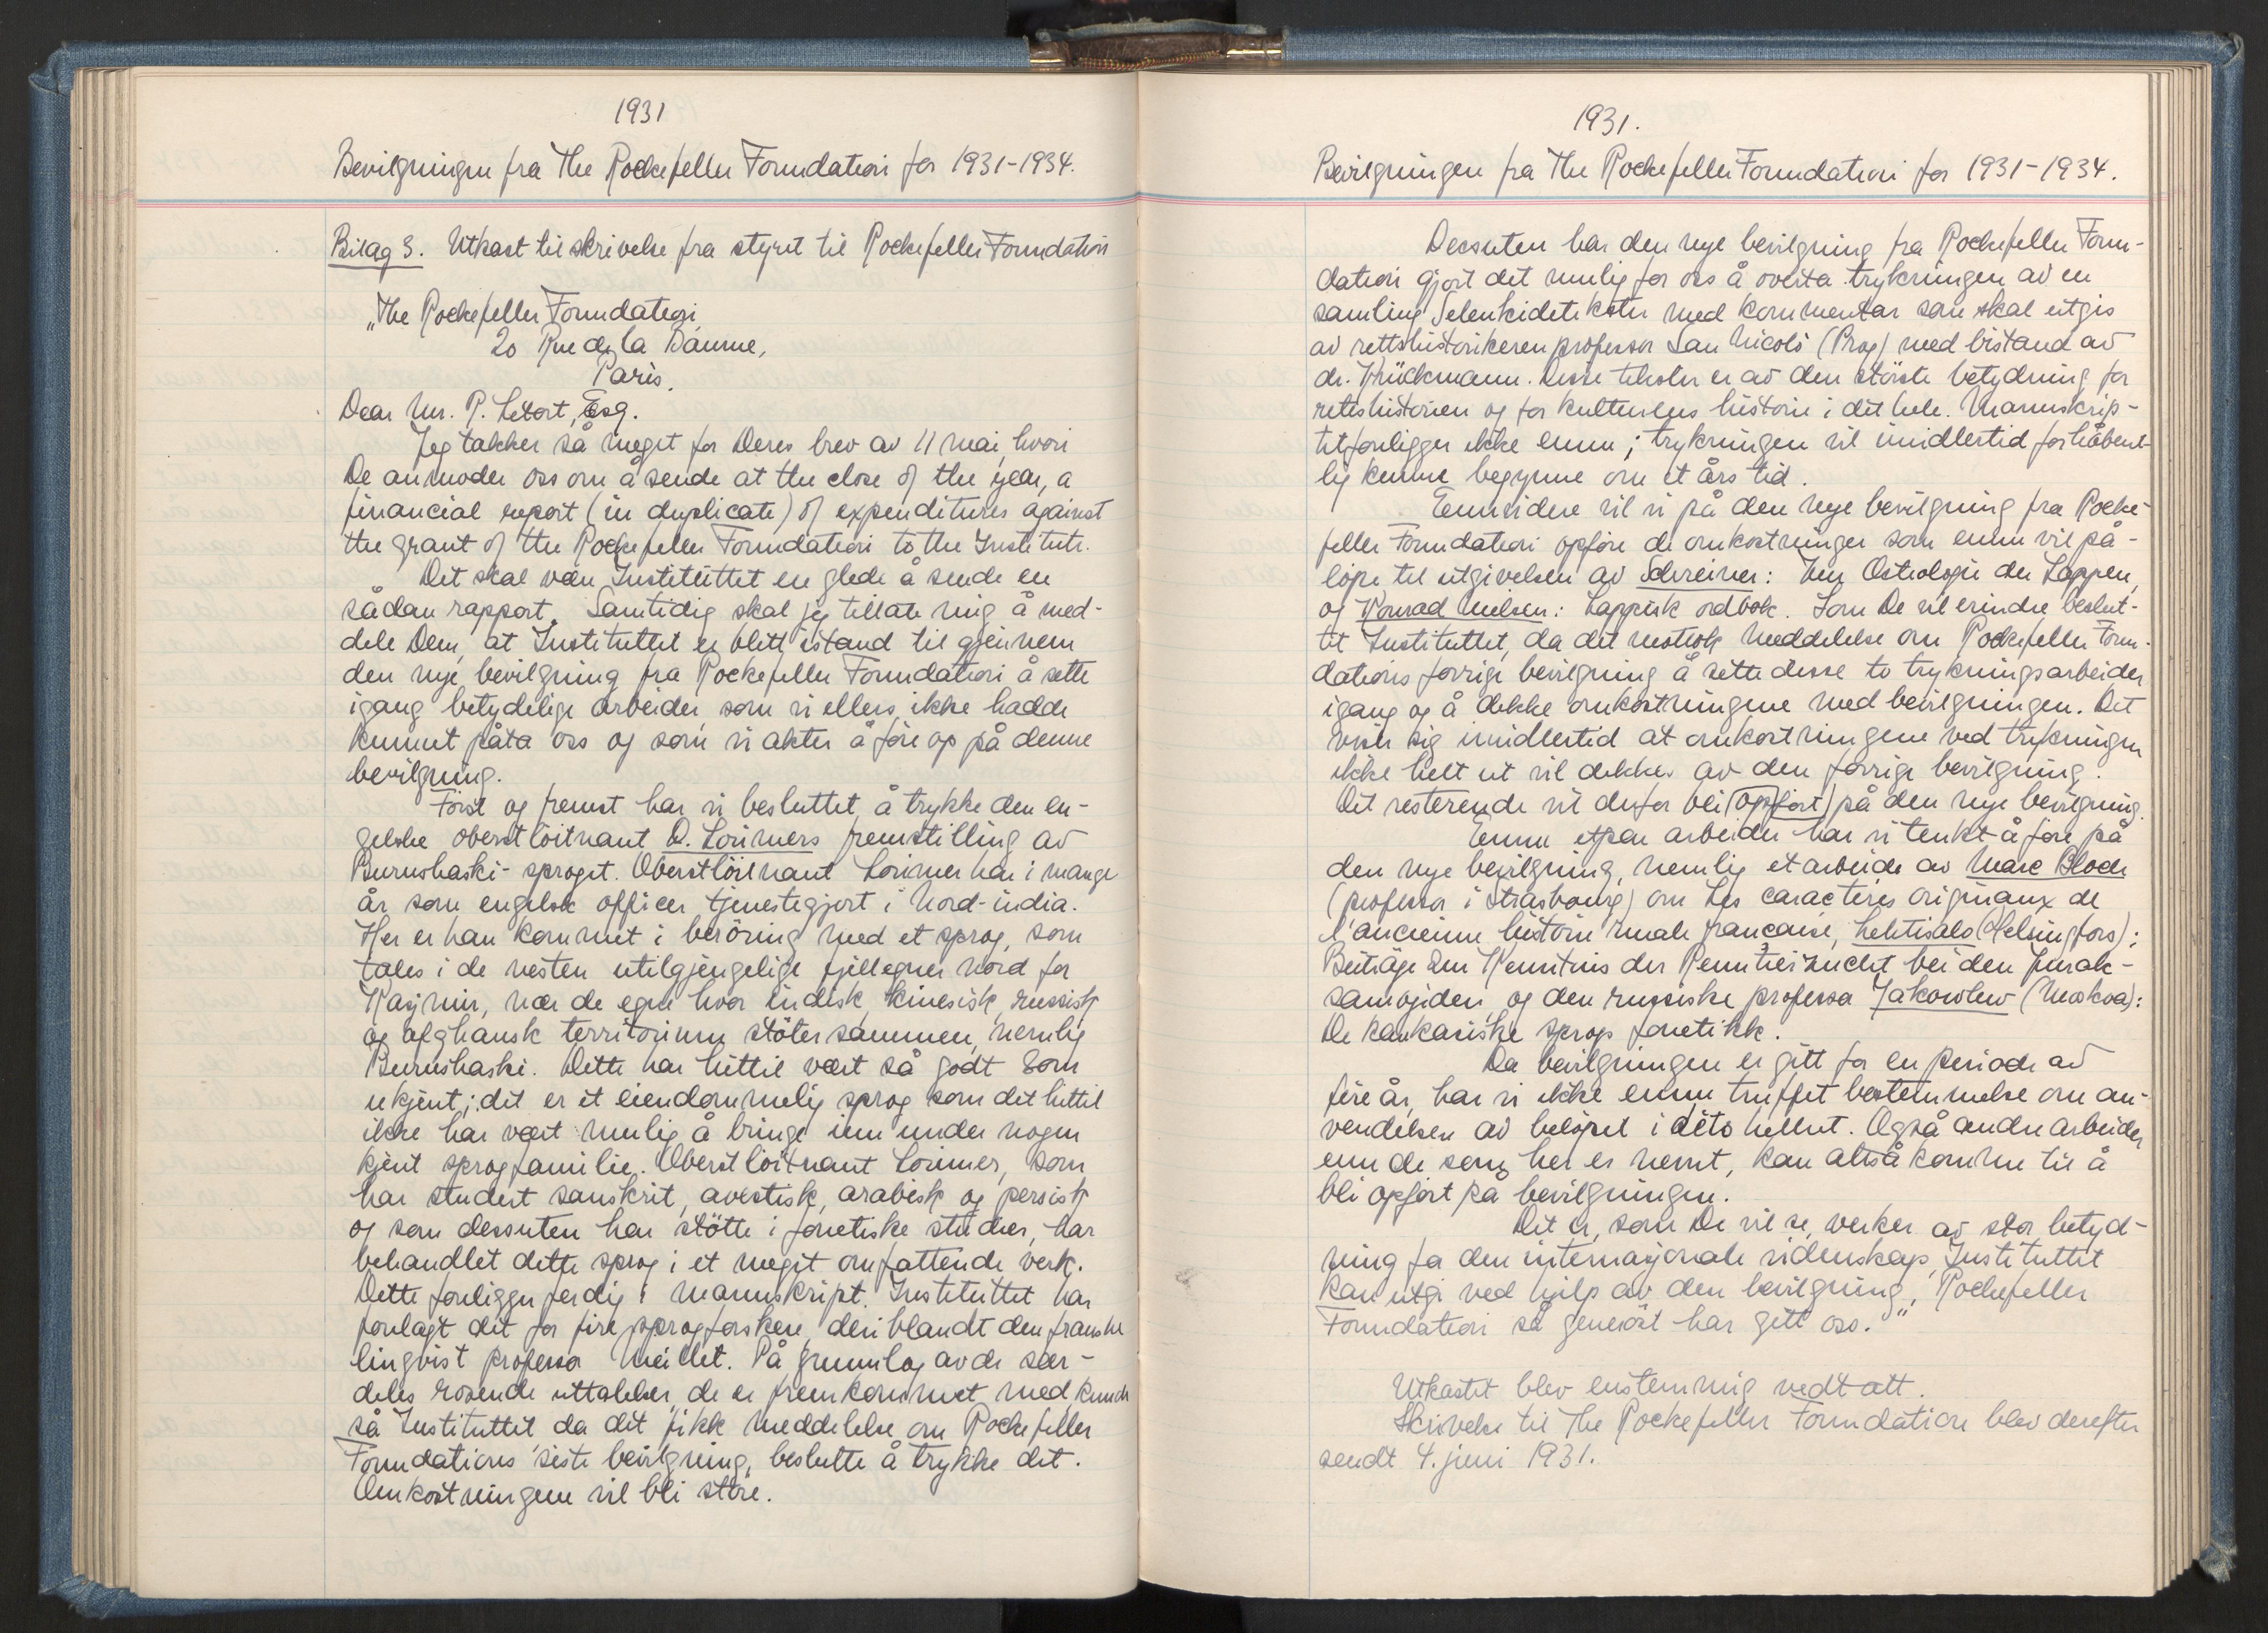 1931
Bevilgningen fra The Rockefeller Foundation for 1931-1934.
Bilag 3. Utkast til skrivelse fra styret til Rockefeller Foundation
„The Rockefeller Foundation,
20 Rue de la Baume,
Paris.
Dear Mr. P. Letort, Esq.
Jeg takker så meget for Deres brev av 11 mai, hvori
De anmoder oss om å sende at the close of the year, a
financial report (in duplicate) of expenditures against
the grant of the Rockefeller Foundation to the Institute.
Det skal være Instituttet en glede å sende en
sådan rapport. Samtidig skal jeg tillate mig å med-
dele Dem, at Instituttet er blitt istand til gjennem
den nye bevilgning fra Rockefeller Foundation å sette
igang betydelige arbeider, som vi ellers ikke hadde
kunnet påta oss og som vi akter å føre op på denne
bevilgning.
Først og fremst har vi besluttet å trykke den en-
gelske oberstløitnant D. Lorimers fremstilling av
Burushaski-sproget. Oberstløitnant Lorimer har i mange
år som engelsk officer tjenestegjort i Nord-india.
Her er han kommet i berøring med et sprog, som
tales i de nesten utilgjengelige fjellegner nord for
Kasjmir, nær de egne hvor indisk, kinesisk, russisk
og afghansk territorium støter sammen, nemlig
Burushaski. Dette har hittil vært så godt som
ukjent; det er et eiendommelig sprog som det hittil
ikke har vært mulig å bringe inn under nogen
kjent sprogfamilie. Oberstløitnant Lorimer, som
har studert sanskrit, avestisk, arabisk og persisk
og som dessuten har støtte i fonetiske studier, har
behandlet dette sprog i et meget omfattende verk.
Dette foreligger ferdig i manuskript. Instituttet har
forelagt det for fire sprogforskere, deriblandt den franske
lingvist professor Meillet. På grunnlag av de sær-
deles rosende uttalelser, de er fremkommet med, kunde
så Instituttet da det fikk meddelelse om Rockefeller
Foundations siste bevilgning, beslutte å trykke det.
Omkostningene vil bli store.
1931.
Bevilgningen fra The Rockefeller Foundation for 1931-1934.
Dessuten har den nye bevilgning fra Rockefeller Foun-
dation gjort det mulig for oss å overta trykningen av en
samling Seleukidetekster med kommentar som skal utgis
av rettshistorikeren professor San Nicolò (Prag) med bistand av
dr. Krückmann. Disse tekster er av den største betydning for
rettshistorien og for kulturens historie i det hele. Manuskrip-
tet foreligger ikke ennu; trykningen vil imidlertid forhåbent-
lig kunne begynne om et års tid.
Ennvidere vil vi på den nye bevilgning fra Rocke-
feller Foundation opføre de omkostninger som ennu vil på-
løpe til utgivelsen av Schreiner: Zur Osteologie der Lappen,
og Konrad Nielsen: Lappisk ordbok. Som De vil erindre beslut-
tet Instituttet, da det mottok meddelelse om Rockefeller Foun-
dations forrige bevilgning å sette disse to trykningsarbeider
igang og å dekke omkostningene med bevilgningen. Det
viser sig imidlertid at omkostningene ved trykningen
ikke helt ut vil dekkes av den forrige bevilgning.
Det resterende vil derfor bli opført på den nye bevilgning.
Ennu et par arbeider har vi tenkt å føre på
den nye bevilgning, nemlig et arbeide av Marc Bloch
(professor i Strasbourg) om Les caractères originaux de
l'ancienne histoire rurale française, Lehtisalo (Helsingfors);
Beiträge zur Kenntnis der Renntierzucht bei den Jurak-
samojeden, og den russiske professor Jakowlew (Moskva):
De kaukasiske sprogs fonetikk.
Da bevilgningen er gitt for en periode av
fire år, har vi ikke ennu truffet bestemmelse om an-
vendelsen av beløpet i dets hellhet. Også andre arbeider
enn de som her er nevnt, kan altså komme til å
bli opført på bevilgningen.
Det er, som De vil se, verker av stor betyd-
ning for den internasjonale videnskap, Instituttet
kan utgi ved hjelp av den bevilgning, Rockefeller
Foundation så generøst har gitt oss."
Utkastet blev enstemmig vedtatt.
Skrivelse til The Rockefeller Foundation blev derefter
sendt 4. juni 1931.